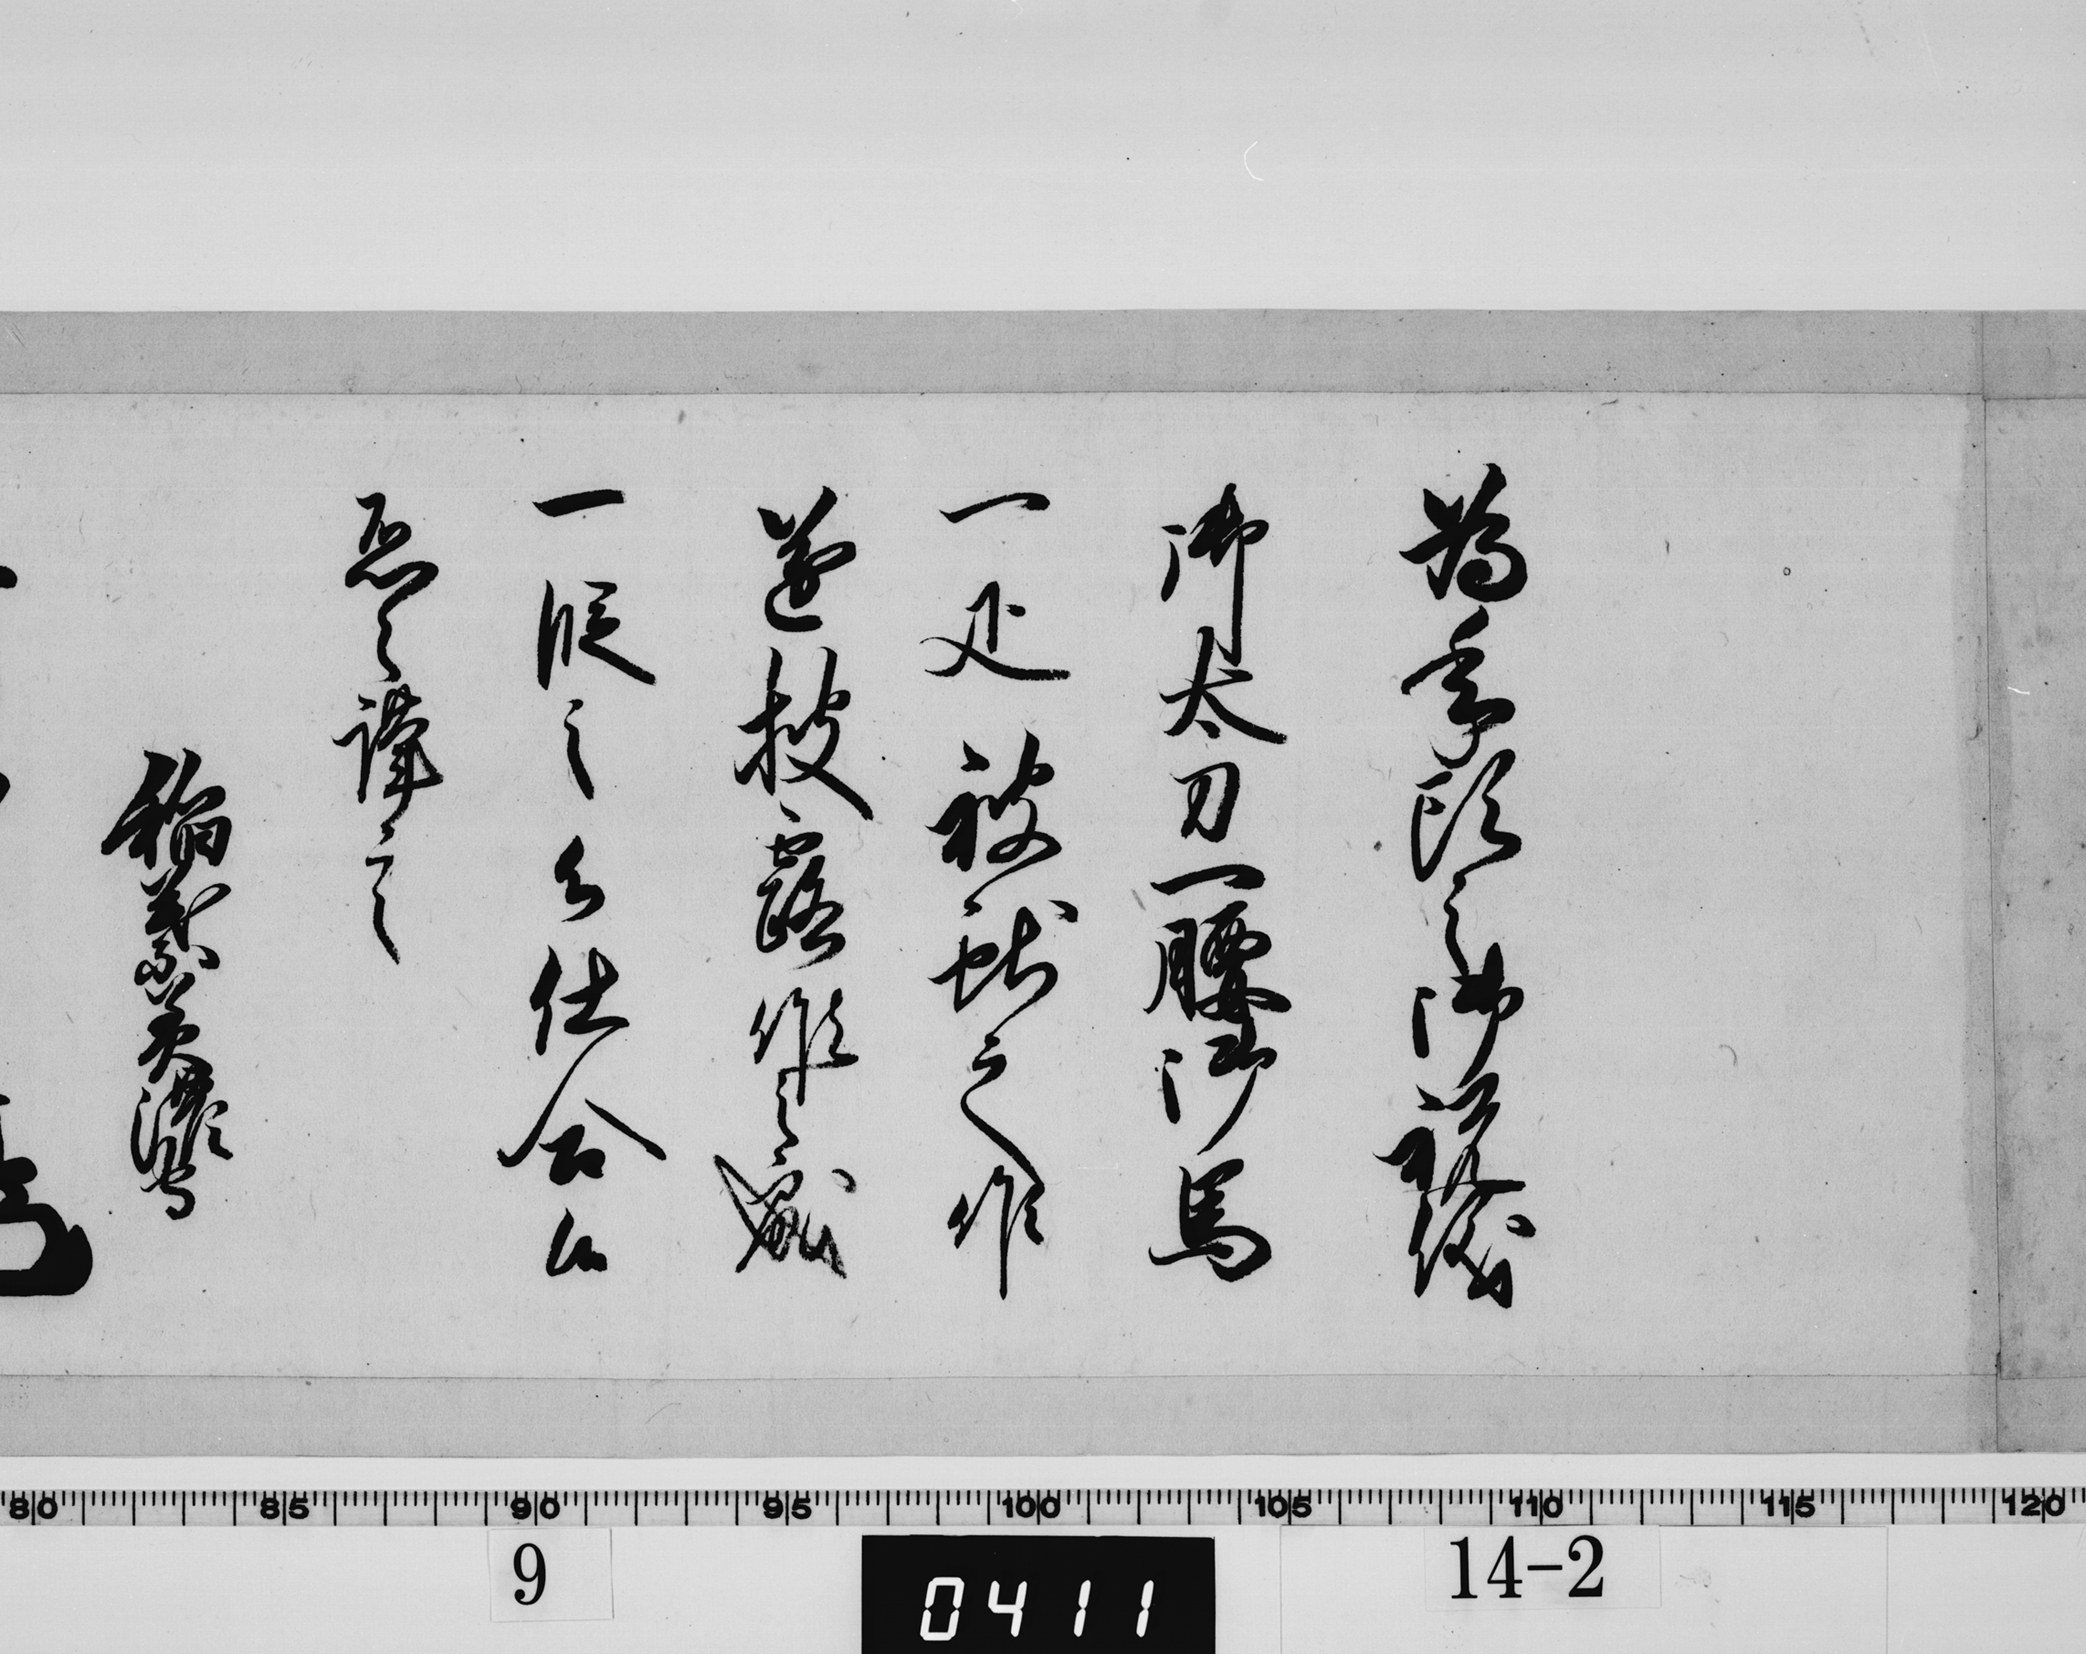 為年頭之御祝儀
御太刀一腰御馬
一疋被献之候
遂披露候之處
一段之御仕合候
恐々謹言
稲葉美濃守
80 85 90 95 100 105 110 115 120
9
0411
14-2